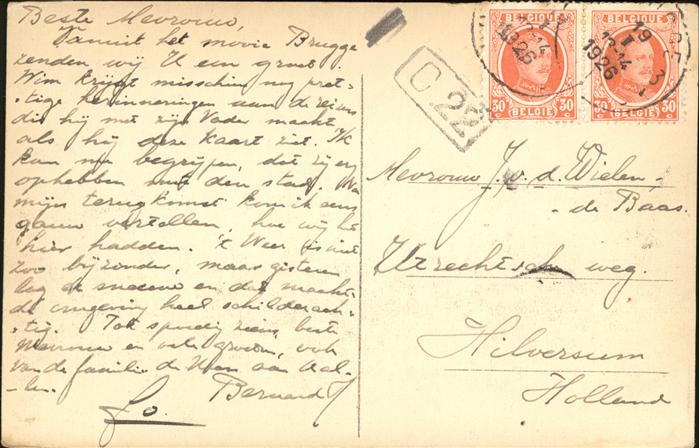 Beste Mevrouw,
Vanuit het mooie Brugge
zenden wij U een groet.
Wim krijgt misschien nog pret-
-tige herinneringen aan de reis
die hij met zijn Vader maakt
als hij deze kaart ziet. Ik
kan me begrijpen, dat zij er
ophebben met den stad. Na
mijn terugkomst kom ik eens
gauw vertellen, hoe wij het
hier hadden. 't Weer is niet
zoo bijzonder, maar gisteren
lag de sneeuw en dat maakt
de omgeving heel schilderach-
-tig. Tot spoedig ziens, beste
Mevrouw en vele groeten, ook
van de familie
Bernard
Jo.
BELGIQUE
30 c 30 c
BELGIË
BELGIQUE
30 c 30 c
BELGIË
13-14
1926
19 I
13-14
1926
3
C 22
Mevrouw J. v. d. Wielen-
-de Baas.
Utrechtsche weg.
Hilversum
Holland